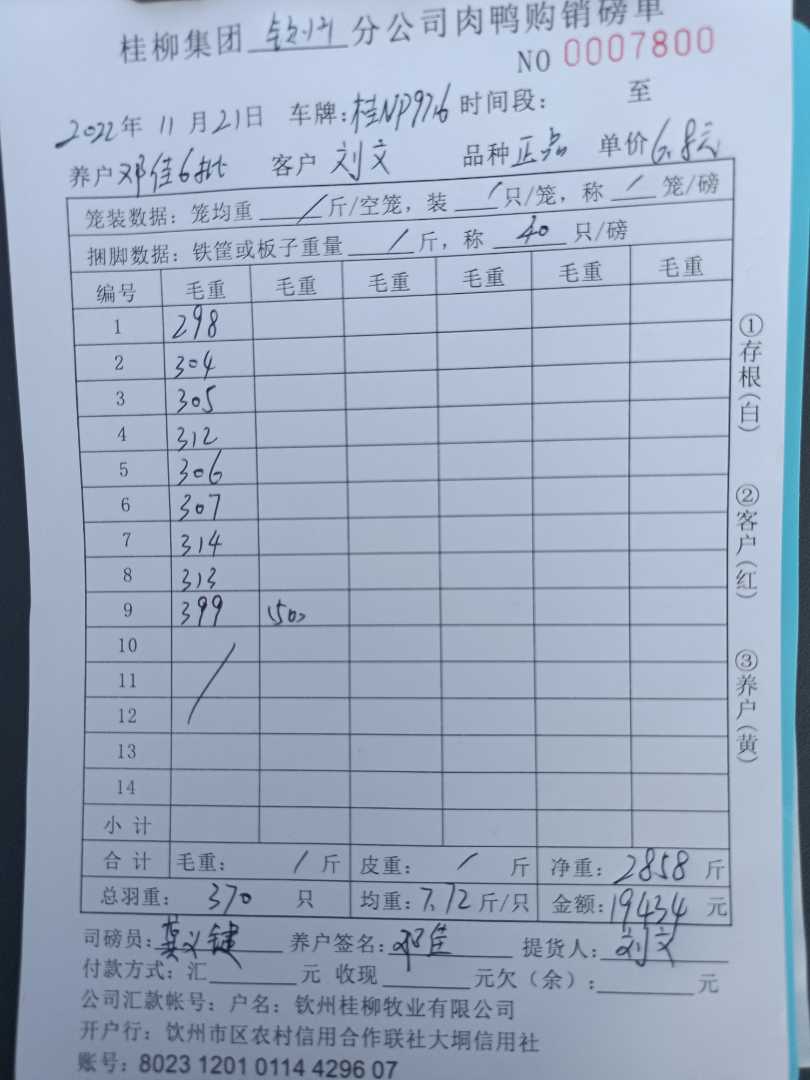 桂柳集团 钦州 分公司肉鸭购销磅单
NO 0007800
2022年 11月21日 车牌:桂NP9726 时间段: 至
养户 邓佳6批 客户 刘文 品种 正品 单价 6.8元
笼装数据:笼均重 / 斤/空笼,装 / 只/笼,称 / 笼/磅
捆脚数据:铁筐或板子重量 / 斤,称 40 只/磅
编号 毛重 毛重 毛重 毛重 毛重 毛重
1 298
2 304
3 305
4 312
5 306
6 307
7 314
8 313
9 399 (50)
10
11
12
13
14
小计
合计 毛重: / 斤 皮重: / 斤 净重: 2858 斤
总羽重: 370 只 均重:7.72斤/只 金额:19434 元
司磅员:龚义键 养户签名:邓佳 提货人:刘文
付款方式:汇 元 收现 元欠(余): 元
公司汇款帐号:户名:钦州桂柳牧业有限公司
开户行:钦州市区农村信用合作联社大垌信用社
账号:8023 1201 0114 4296 07
①存根(白)
②客户(红)
③养户(黄)